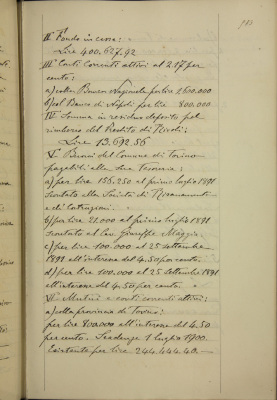 II° Fondo in cassa:
Lire 400.627.92
III° Conti Correnti attivi al 217 per
cento:
a) colla Banca Nazionale per lire 2600.000
b) col Banco di Napoli per lire 800.000
IV° Somma in residuo deposito pel
rimborso del Prestito di Rivoli:
Lire 13.692.56
V° Buoni del Comune di Torino
pagabili alla sua Tesoreria:
a) per lire 156.250 al primo luglio 1891
scontato alla Società di Risanamento
e di Costruzioni.
b) per lire 21.000 al primo luglio 1891
scontato al Cav. Giuseppe Maggia.
c) per lire 100.000 al 25 settembre
1891 all'interesse del 4.50 per cento.
d) per lire 100.000 al 25 settembre 1891
all'interesse del 4.50 per cento.
VI° Mutui e conti correnti attivi:
a) colla provincia di Torino:
per lire 800.000 all'interesse del 4.50
per cento. Scadenza 1 luglio 1900.
Esistente per lire 244.444.40